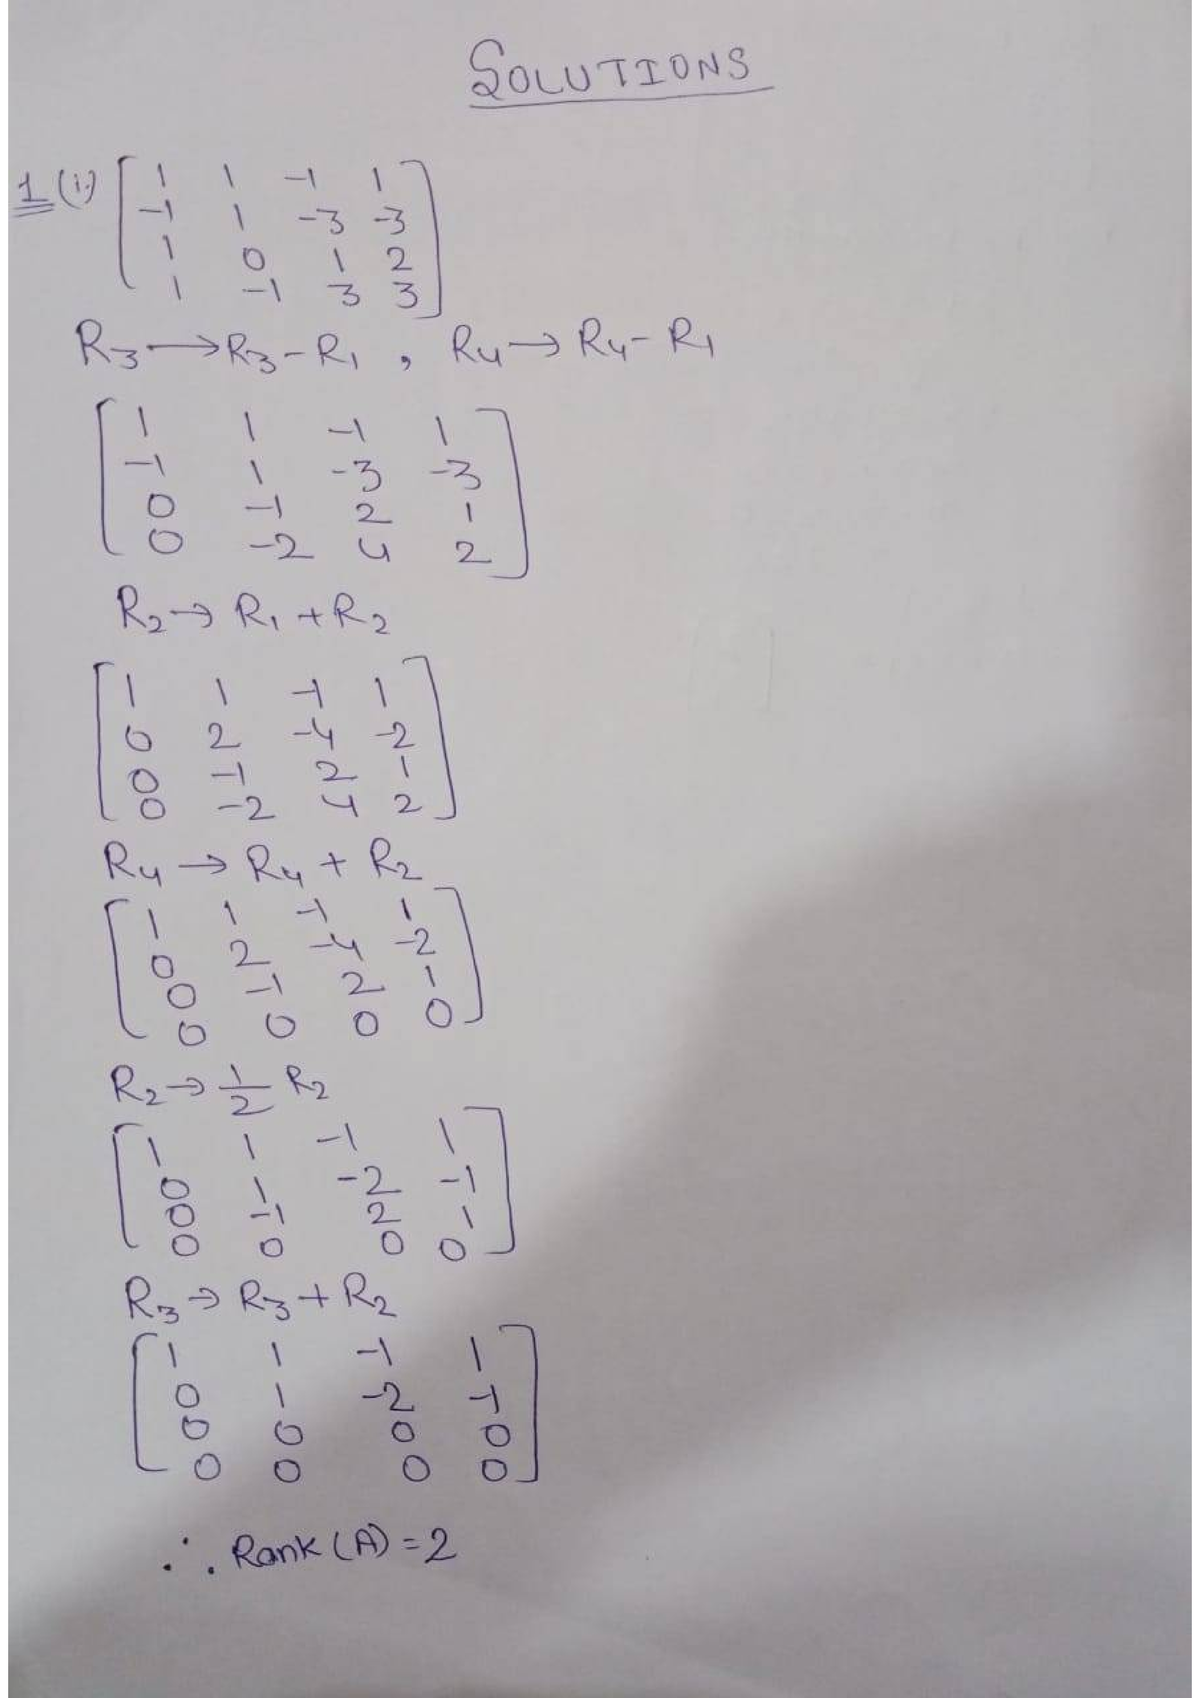 SOLUTIONS
1 (i)
1 1 -1 1
-1 1 -3 -3
1 0 1 2
1 -1 3 3
R3 → R3 - R1 , R4 → R4 - R1
1 1 -1 1
-1 1 -3 -3
0 -1 2 1
0 -2 4 2
R2 → R1 + R2
1 1 -1 1
0 2 -4 -2
0 -1 2 1
0 -2 4 2
R4 → R4 + R2
1 1 -1 1
0 2 -4 -2
0 -1 2 1
0 0 0 0
R2 → 1/2 R2
1 1 -1 1
0 1 -2 -1
0 -1 2 1
0 0 0 0
R3 → R3 + R2
1 1 -1 1
0 1 -2 -1
0 0 0 0
0 0 0 0
∴ Rank (A) = 2